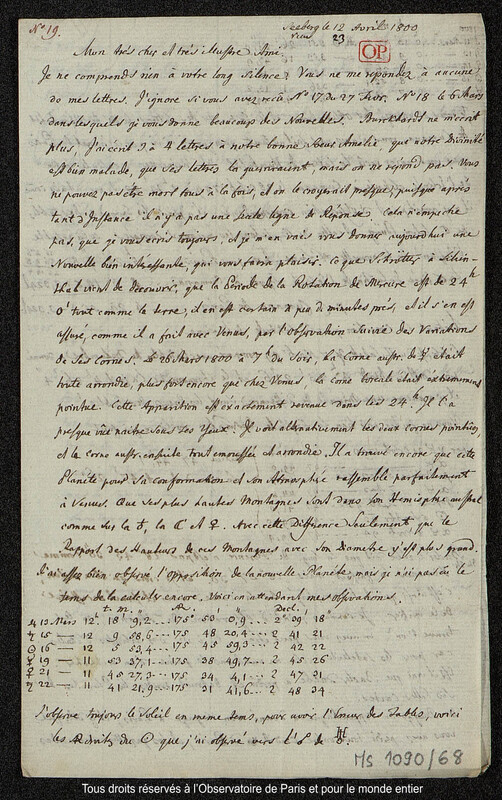 No 19.
Seeberg le 12 Avril 1800
reçu 23
OP
Mon très cher et très illustre Ami
Je ne comprends rien à votre long silence! Vous ne me repondez à aucune
de mes lettres. J'ignore si vous avez reçû No 17. du 27 Fevr. No 18 le 6 Mars
dans lesquels je vous donne beaucoup des Nouvelles. Burckhardt ne m'ecrit
plus, J'ai ecrit 3 à 4 lettres à notre bonne Soeur Amelie, que notre Divinité
est bien malade, que ses lettres la gueriraient, mais on ne repond pas. Vous
ne pouvez pas etre morts tous à la fois, et on le croyerait presque, puisque après
tant d'Instance il n'y a pas une seule ligne de Réponse. Cela n'empeche
pas, que je vous ecris toujours. Et je m'en vais vous donner aujourd'hui une
Nouvelle bien interessante, qui vous faira plaisir. Ce que Schröter à Lilien-
thal vient de decouvrir, que la Période de la Rotation de Mercure est de 24h
0' tout comme la terre; il en est certain à peu de minutes près, et il s'en est
assuré, comme il a fait avec Venus, par l'Observation suivie des Variations
de ses Cornes. Le 26 Mars 1800 à 7h du soir, la Corne austr. de ☿ etait
toute arrondie, plus fort encore que chez Venus, la corne boreale etait extremement
pointue. Cette Apparition est exactement revenue dans les 24h. Il l'a
presque vûe naitre sous ses yeux. Il voit alternativement les deux cornes pointües,
et la Corne austr. ensuite tout emoussée et arrondie. Il a trouvé encore que cette
Planete pour sa conformation et son Atmosphère ressemble parfaitement
à Venus. Que ses plus hautes Montagnes sont dans son Hemisphre austral
comme sur la ♁, la ☾ et ♀. Avec cette Difference seulement, que le
Rapport des Hauteurs de ces Montagnes avec son Diametre y est plus grand.
J'ai assez bien observé l'opposition de la nouvelle Planète, mais je n'ai pas eu le
tems de la calculer encore. Voici en attendant mes observations.
t. m. Æ. Decl.
♃ 13 Mars 12h 18' 9,2 ... 175° 53' 0,9 ... 2° 39' 18"
♄ 15 — 12 9 58,6 ... 175 48 20,4 ... 2 41 21
☉ 16 — 12 5 53,4 ... 175 45 59,3 ... 2 42 22
☿ 19 — 11 53 37,1 ... 175 38 49,7 ... 2 45 26
♀ 21 — 11 45 27,3 ... 175 34 4,1 ... 2 47 21
♄ 22 — 11 41 21,9 ... 175 31 41,6 ... 2 48 34
J'observe toujours le Soleil en meme tems, pour avoir l'Erreur des Tables, voici
les Æ droites du ☉ que j'ai observé vers l'☍ de ♅.
Ms 1090/68
Tous droits réservés à l'Observatoire de Paris et pour le monde entier